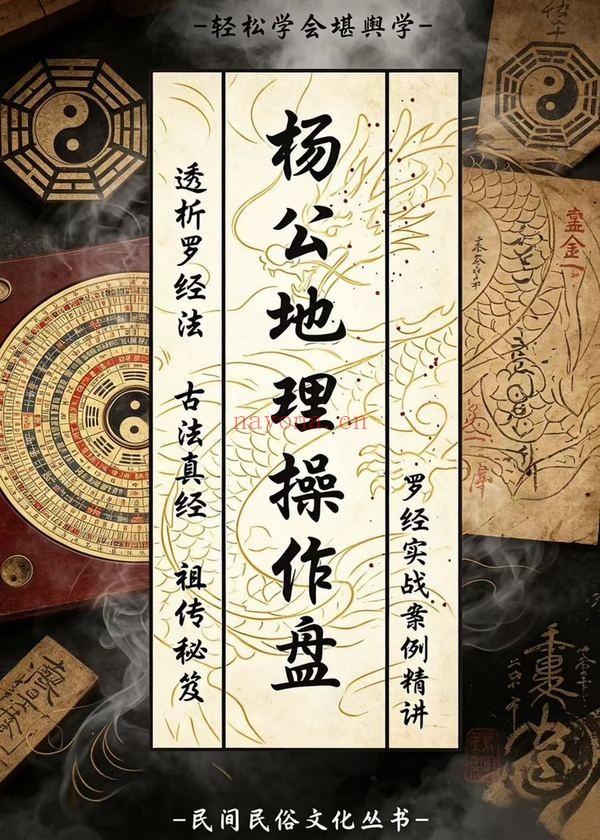 -轻松学会堪舆学-
杨公地理操作盘
透析罗经法 古法真经 祖传秘笈
罗经实战案例精讲
nayona.cn
-民间民俗文化丛书-